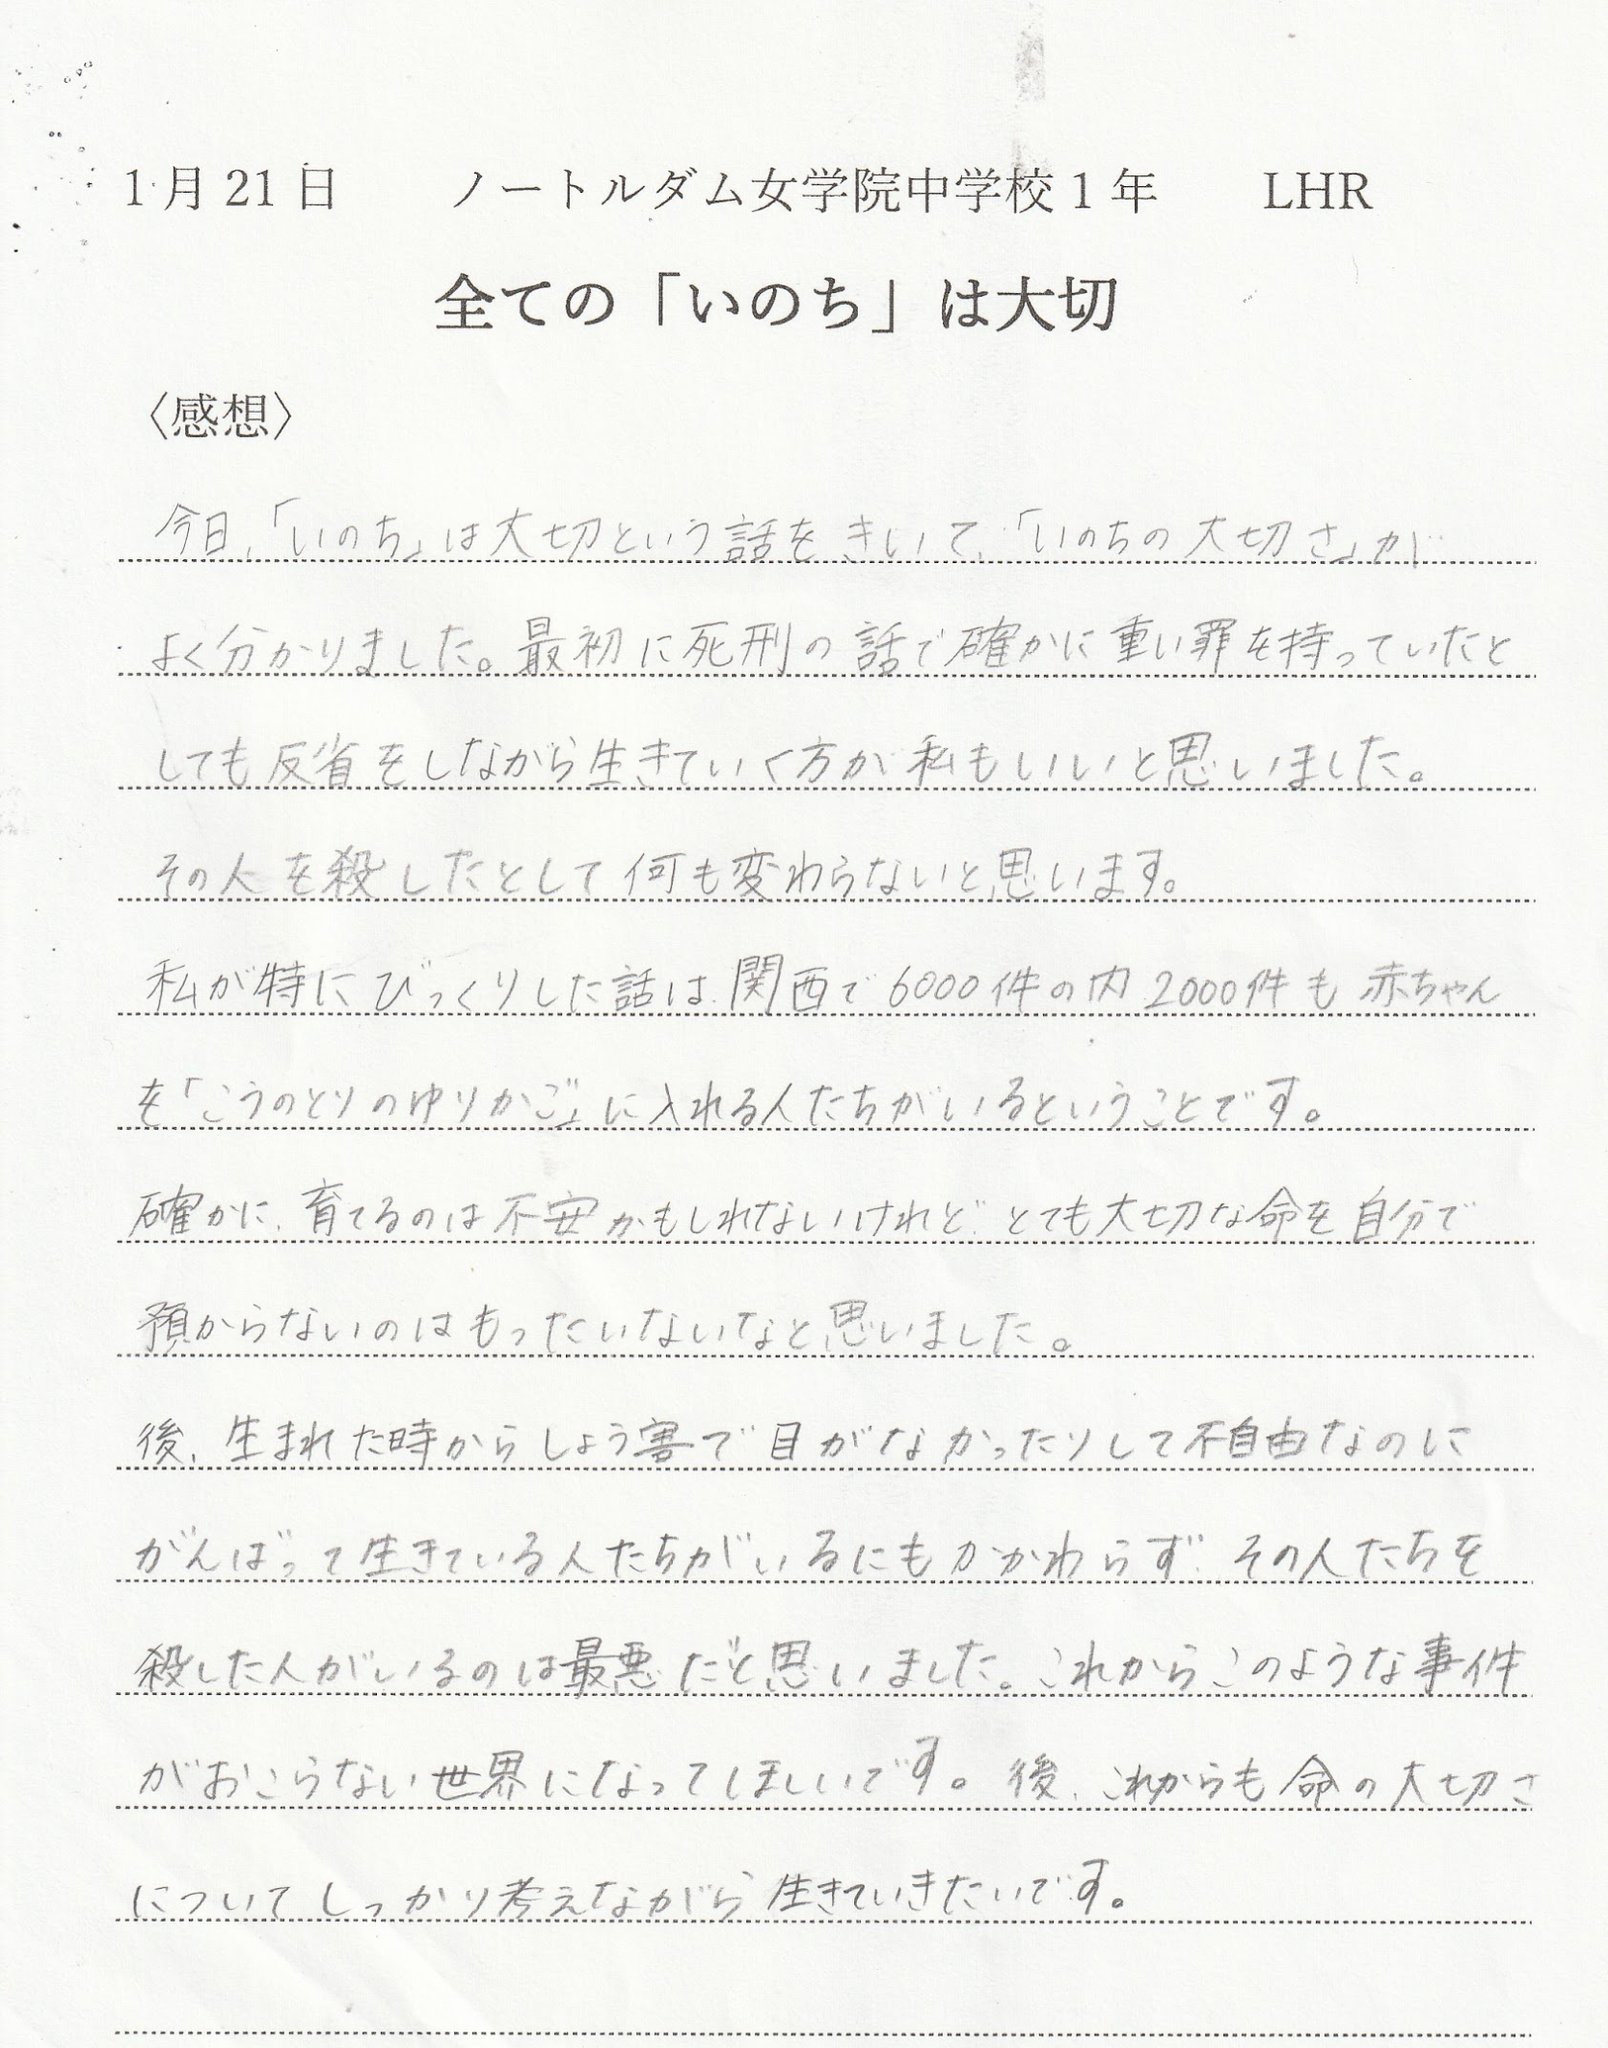 1月21日 ノートルダム女学院中学校1年 LHR
全ての「いのち」は大切
〈感想〉
今日、「いのち」は大切という話をきいて、「いのちの大切さ」が
よく分かりました。最初に死刑の話で確かに重い罪を持っていたと
しても反省をしながら生きていく方が私もいいと思いました。
その人を殺したとして何も変わらないと思います。
私が特にびっくりした話は、関西で6000件の内2000件も赤ちゃん
を「こうのとりのゆりかご」に入れる人たちがいるということです。
確かに、育てるのは不安かもしれないけれど、とても大切な命を自分で
預からないのはもったいないなと思いました。
後、生まれた時からしょう害で目がなかったりして不自由なのに
がんばって生きている人たちがいるにもかかわらず、その人たちを
殺した人がいるのは最悪だと思いました。これからこのような事件
がおこらない世界になってほしいです。後、これからも命の大切さ
についてしっかり考えながら生きていきたいです。